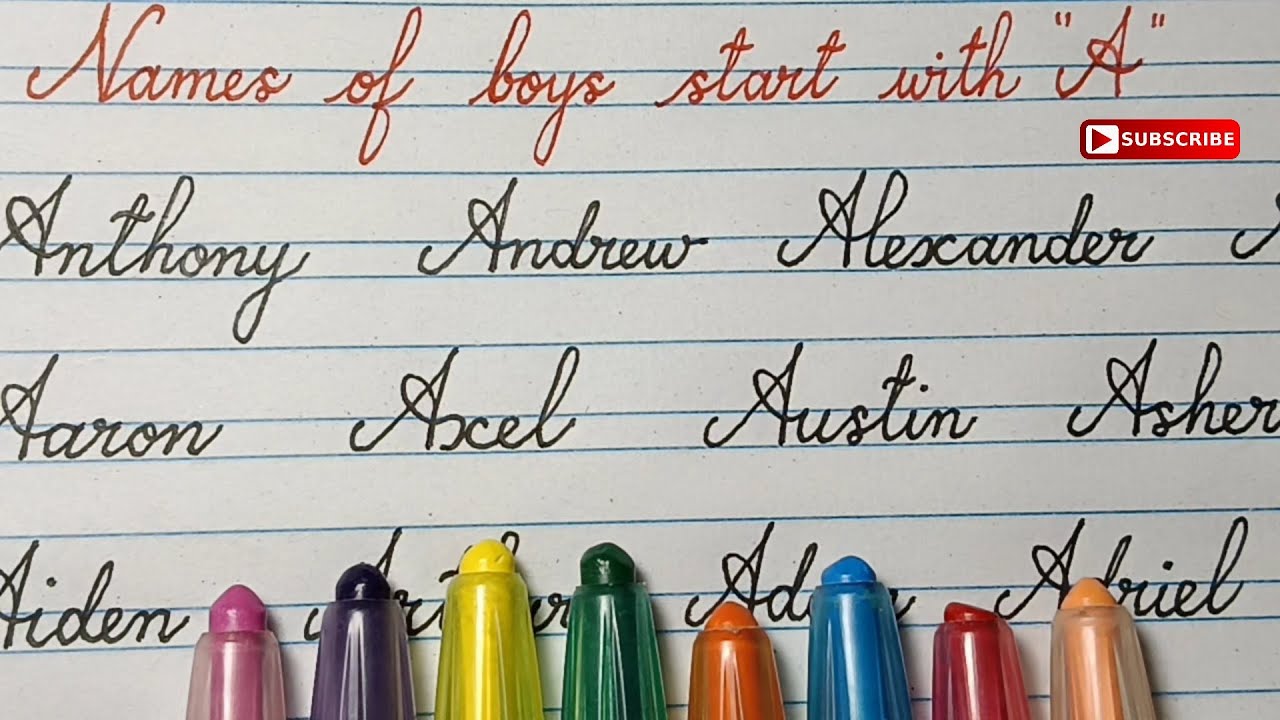 Names of boys start with "A"
SUBSCRIBE
Anthony Andrew Alexander
Aaron Axel Austin Asher
Aiden